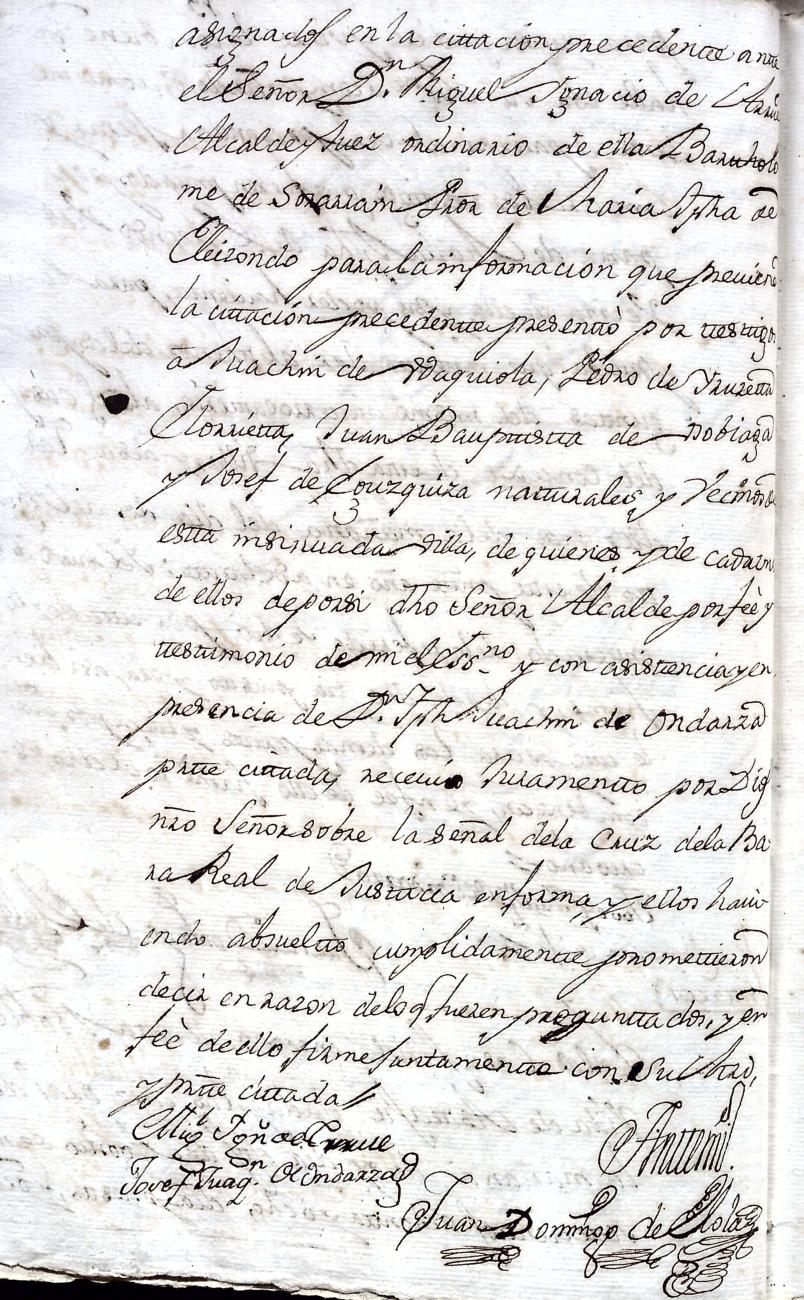 asignados en la cittación precedentte antte
el Señor Dn. Miguel Ygnacio de
Alcalde y Juez ordinario de ella Bartholo
me de Sorarrain Pror. de Maria Jpha de
Eleizondo para la información que previene
la cittación precedentte presenttò por testigos
â Juachin de Odaquiola, Pedro de Yruretta
Juan Bauptistta de
y Josef de Couzquiza natturales, y Vecinos de
estta insinuada villa, de quienes y de cada uno
de ellos deporsi dho Señor Alcalde por feè y
testtimonio de mi el Essno. y con asistencia y en
presencia de Dn. Jph Juachin de Ondarza
partte cittada, recevio Juramentto por Dios
nro Señor sobre la señal dela Cruz dela Ba
ra Real de Justticia en forma, y ellos havi
endo absueltto cumplidamentte promettieron
decir en razon delo q fueren preguntados, y en
feè de ello firmè juntamentte con su Mrd,
y partte cittada
Migl. Ygno de Irrue
Josef Juaqn. de Ondarza
Antte mi.
Juan Domingo de Elola